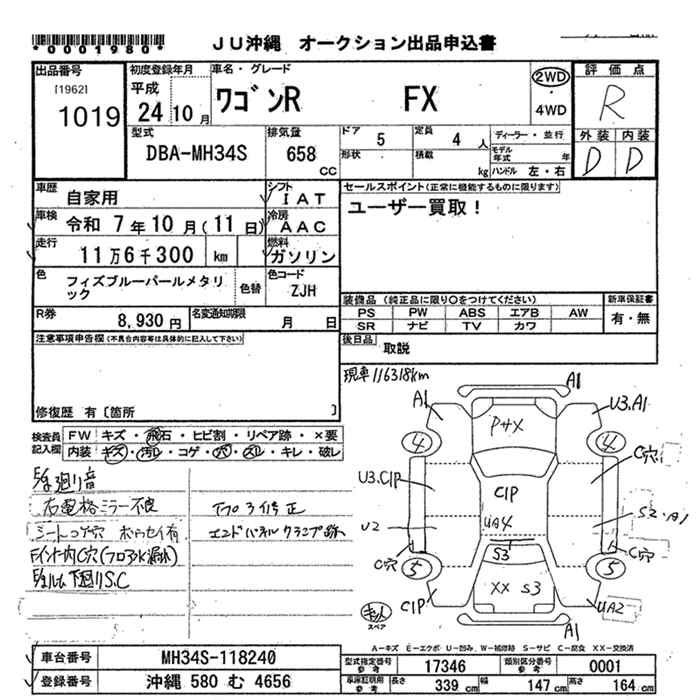 *0001980*
JU沖縄 オークション出品申込書
出品番号
[1962]
1019
初度登録年月
平成
24年10月
車名・グレード
ワゴンR FX
2WD
・
4WD
評価点
R
外装 内装
D D
型式
DBA-MH34S
排気量
658
cc
ドア 5
形状
定員 4 人
積載 kg
ディーラー・並行
モデル年式 年
ハンドル 左・右
車歴 自家用
シフト IAT
車検 令和 7年10月(11日)
冷房 AAC
走行 11万6千300 km
燃料 ガソリン
色 フィズブルーパールメタリック
色替
色コード ZJH
R券 8,930円
名変通知期限 月 日
セールスポイント(正常に機能するものに限ります)
ユーザー買取！
装備品(純正品に限り○をつけてください)
新車保証書
PS PW ABS エアB AW
SR ナビ TV カワ
有・無
後日品 取説
注意事項申告欄(不具合内容等は具体的に記入して下さい)
修復歴 有〔箇所 〕
現車116318km
検査員記入欄
FW キズ・飛石・ヒビ割・リペア跡・×要
内装 キズ・汚レ・コゲ・穴・スレ・キレ・破レ
右電格ミラー不良
シートコゲ穴
エンドパネルクランプ跡
A1
A1
U3.A1
PキX
4
4
C穴
U3.C1P
C1P
UA4
U2
S2・A1
S3
C穴
C穴
5
5
XX S3
C1P
UA2
A1
スペア
A-キズ E-エクボ U-凹み、W-補修跡 S-サビ C-腐食 XX-交換済
車台番号 MH34S-118240
登録番号 沖縄 580 む 4656
型式指定番号 参考 17346
類別区分番号 参考 0001
車庫証明用 参考 長さ 339 cm 幅 147 cm 高さ 164 cm